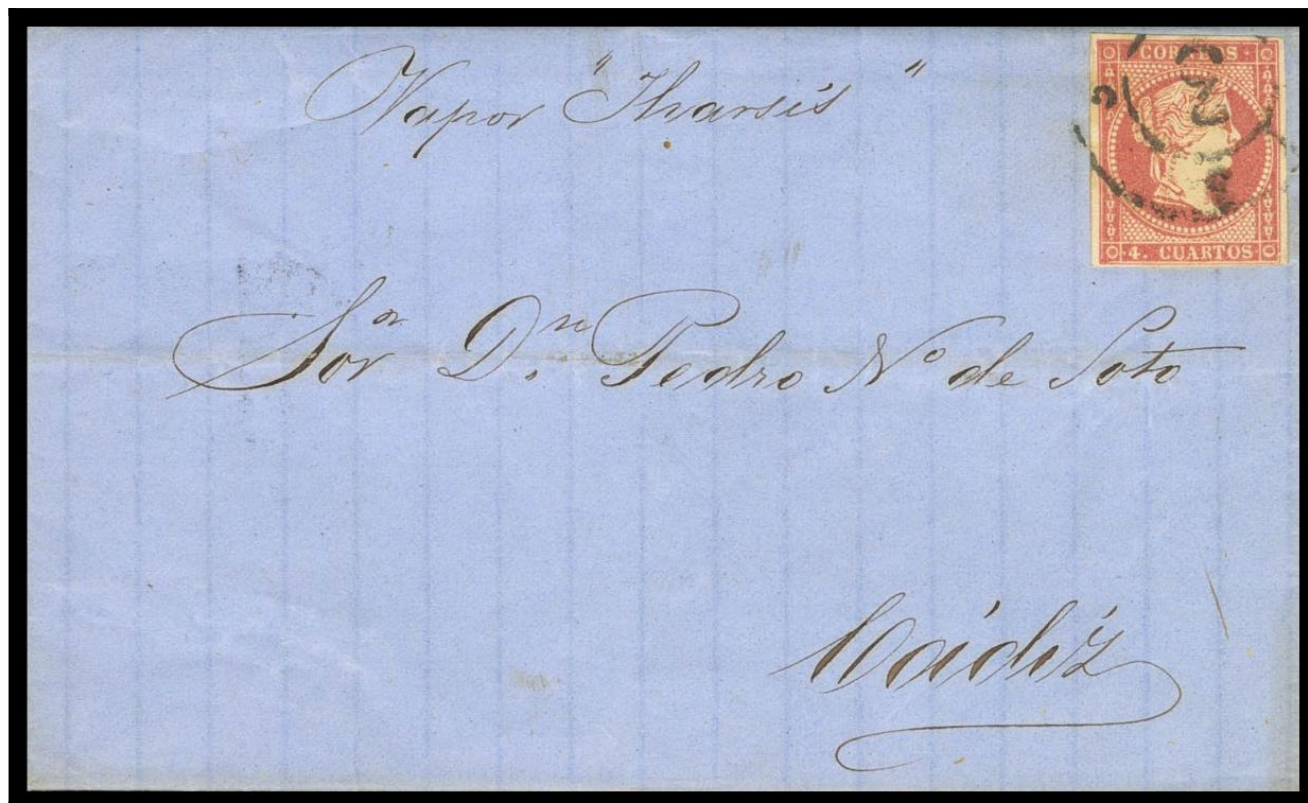 Vapor "Tharsis"
CORREOS
4. CUARTOS
Sor. Dn. Pedro No de Soto
Cádiz